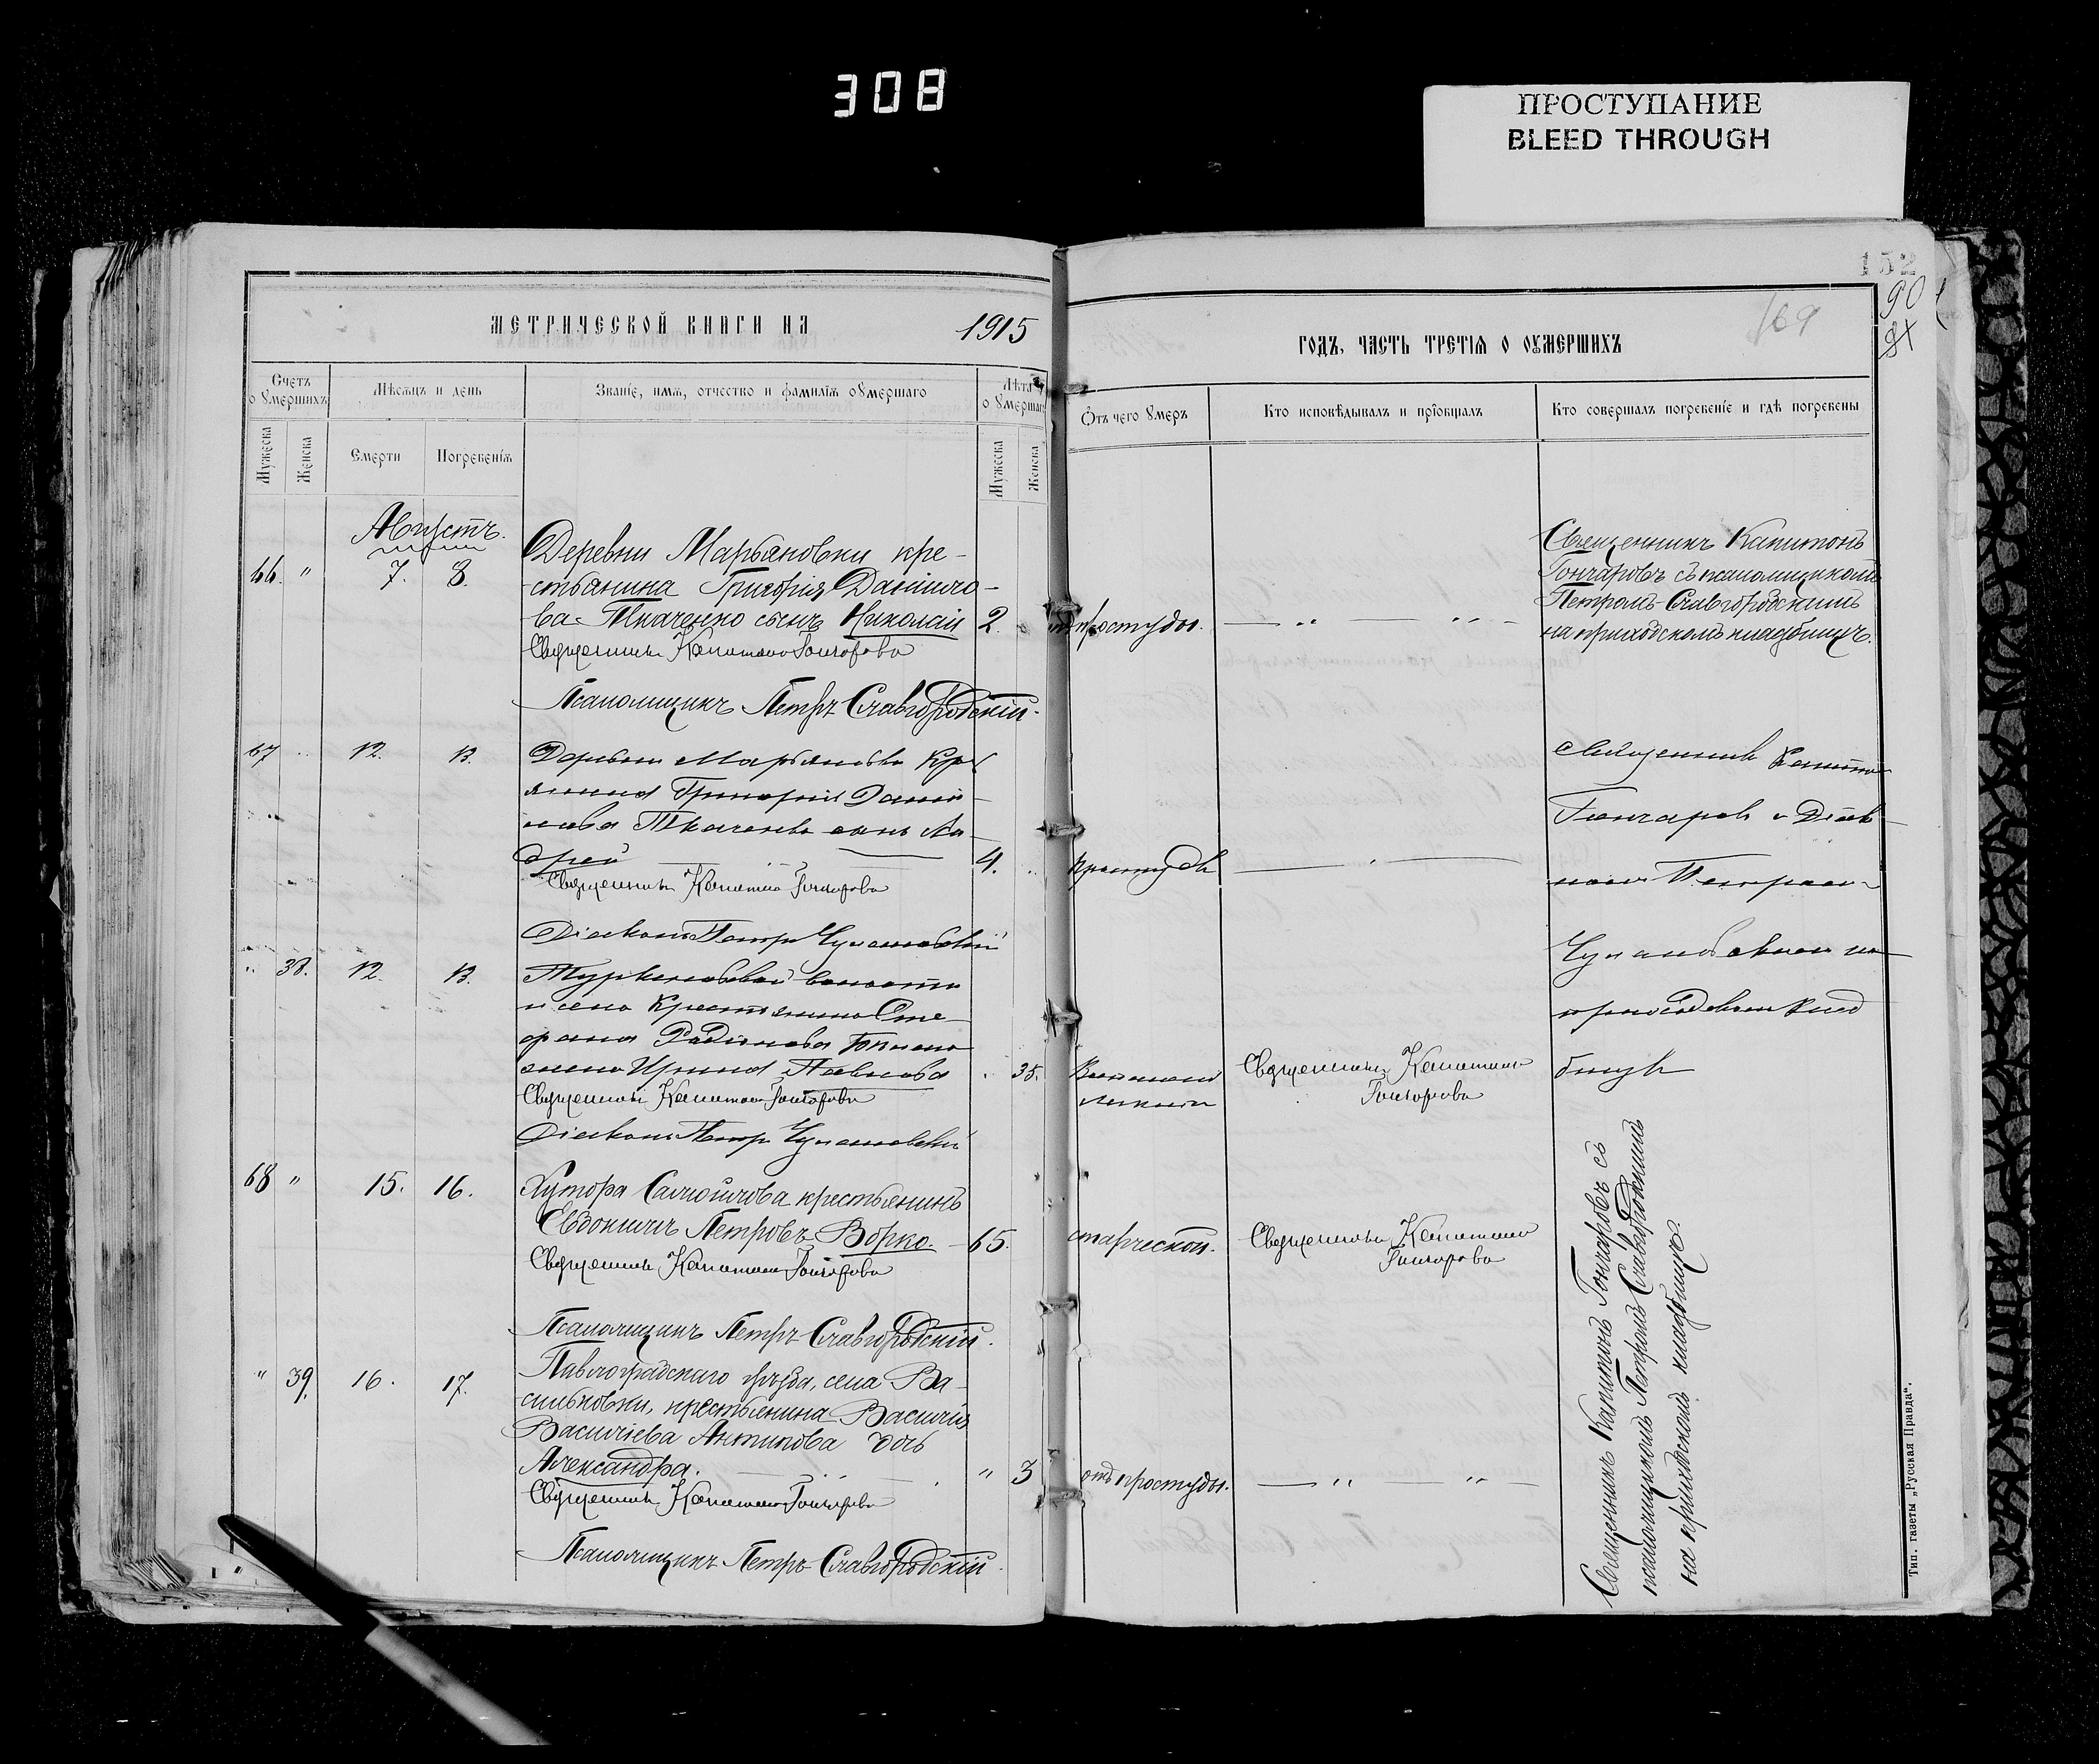 308
ПРОСТУПАНИЕ
BLEED THROUGH
152
90
81
169
МЕТРИЧЕСКОЙ КНИГИ НА 1915
ГОДЪ, ЧАСТЬ ТРЕТІѦ О ОУМЕРШИХЪ
Счетъ оумершихъ
Мужеска
Женска
Мѣсяцъ и день
Смерти
Погребенія
Званіе, имя, отчество и фамилія оумершаго
Лѣта оумершаго
Мужеска
Женска
Отъ чего умеръ
Кто исповѣдывалъ и пріобщалъ
Кто совершалъ погребеніе и гдѣ погребены
Августъ.
66. " 7. 8.
Деревни Марьяновки кре-
стьянина Григорія Данило-
ва Ткаченко сынъ Николай 2.
отъ простуды.
Священникъ Капитонъ
Гончаровъ съ псаломщикомъ
Петромъ Славгородскимъ
на приходскомъ кладбищѣ.
Священникъ Капитонъ Гончаровъ
Псаломщикъ Петръ Славгородскій.
67 12. 13.
Деревни Марьяновки Кре
янина Григорія Дани-
лова Ткаченко сынъ Ан-
дрей 4.
простуды
Священникъ Капитонъ
Гончаровъ с Діак-
номъ Петромъ
Чумановскимъ на
приходскомъ клад
бищѣ
Священникъ Капитонъ Гончаровъ
Діаконъ Петръ Чумановскій
" 38. 12. 13.
волости
и села Крестьянина Сте-
фана Радіонова
жена Ирина Павлова 35.
Священникъ Капитонъ
Гончаровъ
Священникъ Капитонъ Гончаровъ
Діаконъ Петръ Чумановскій
68 " 15. 16.
Хутора Самойлова крестьянинъ
Евдокимъ Петровъ Ворко. 65.
старческой.
Священникъ Капитонъ
Гончаровъ
Священникъ Капитонъ Гончаровъ
Псаломщикъ Петръ Славгородскій.
" 39. 16. 17.
Павлоградскаго уѣзда, села Ва-
сильковки, крестьянина Василія
Василіева Антипова дочь
Александра. " 3
отъ простуды.
Священникъ Капитонъ Гончаровъ
Псаломщикъ Петръ Славгородскій.
Священникъ Капитонъ Гончаровъ съ
псаломщикомъ Петромъ Славгородскимъ
на приходскомъ кладбищѣ.
Тип. газеты „Русская Правда“.